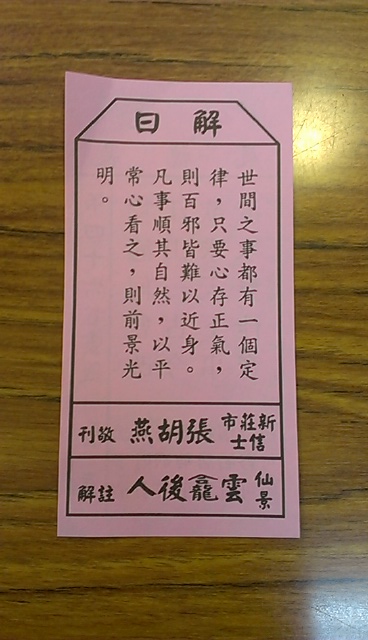 解曰
世間之事都有一個定
律，只要心存正氣，
則百邪皆難以近身。
凡事順其自然，以平
常心看之，則前景光
明。
新莊市信士張胡燕敬刊
仙景雲龕後人註解